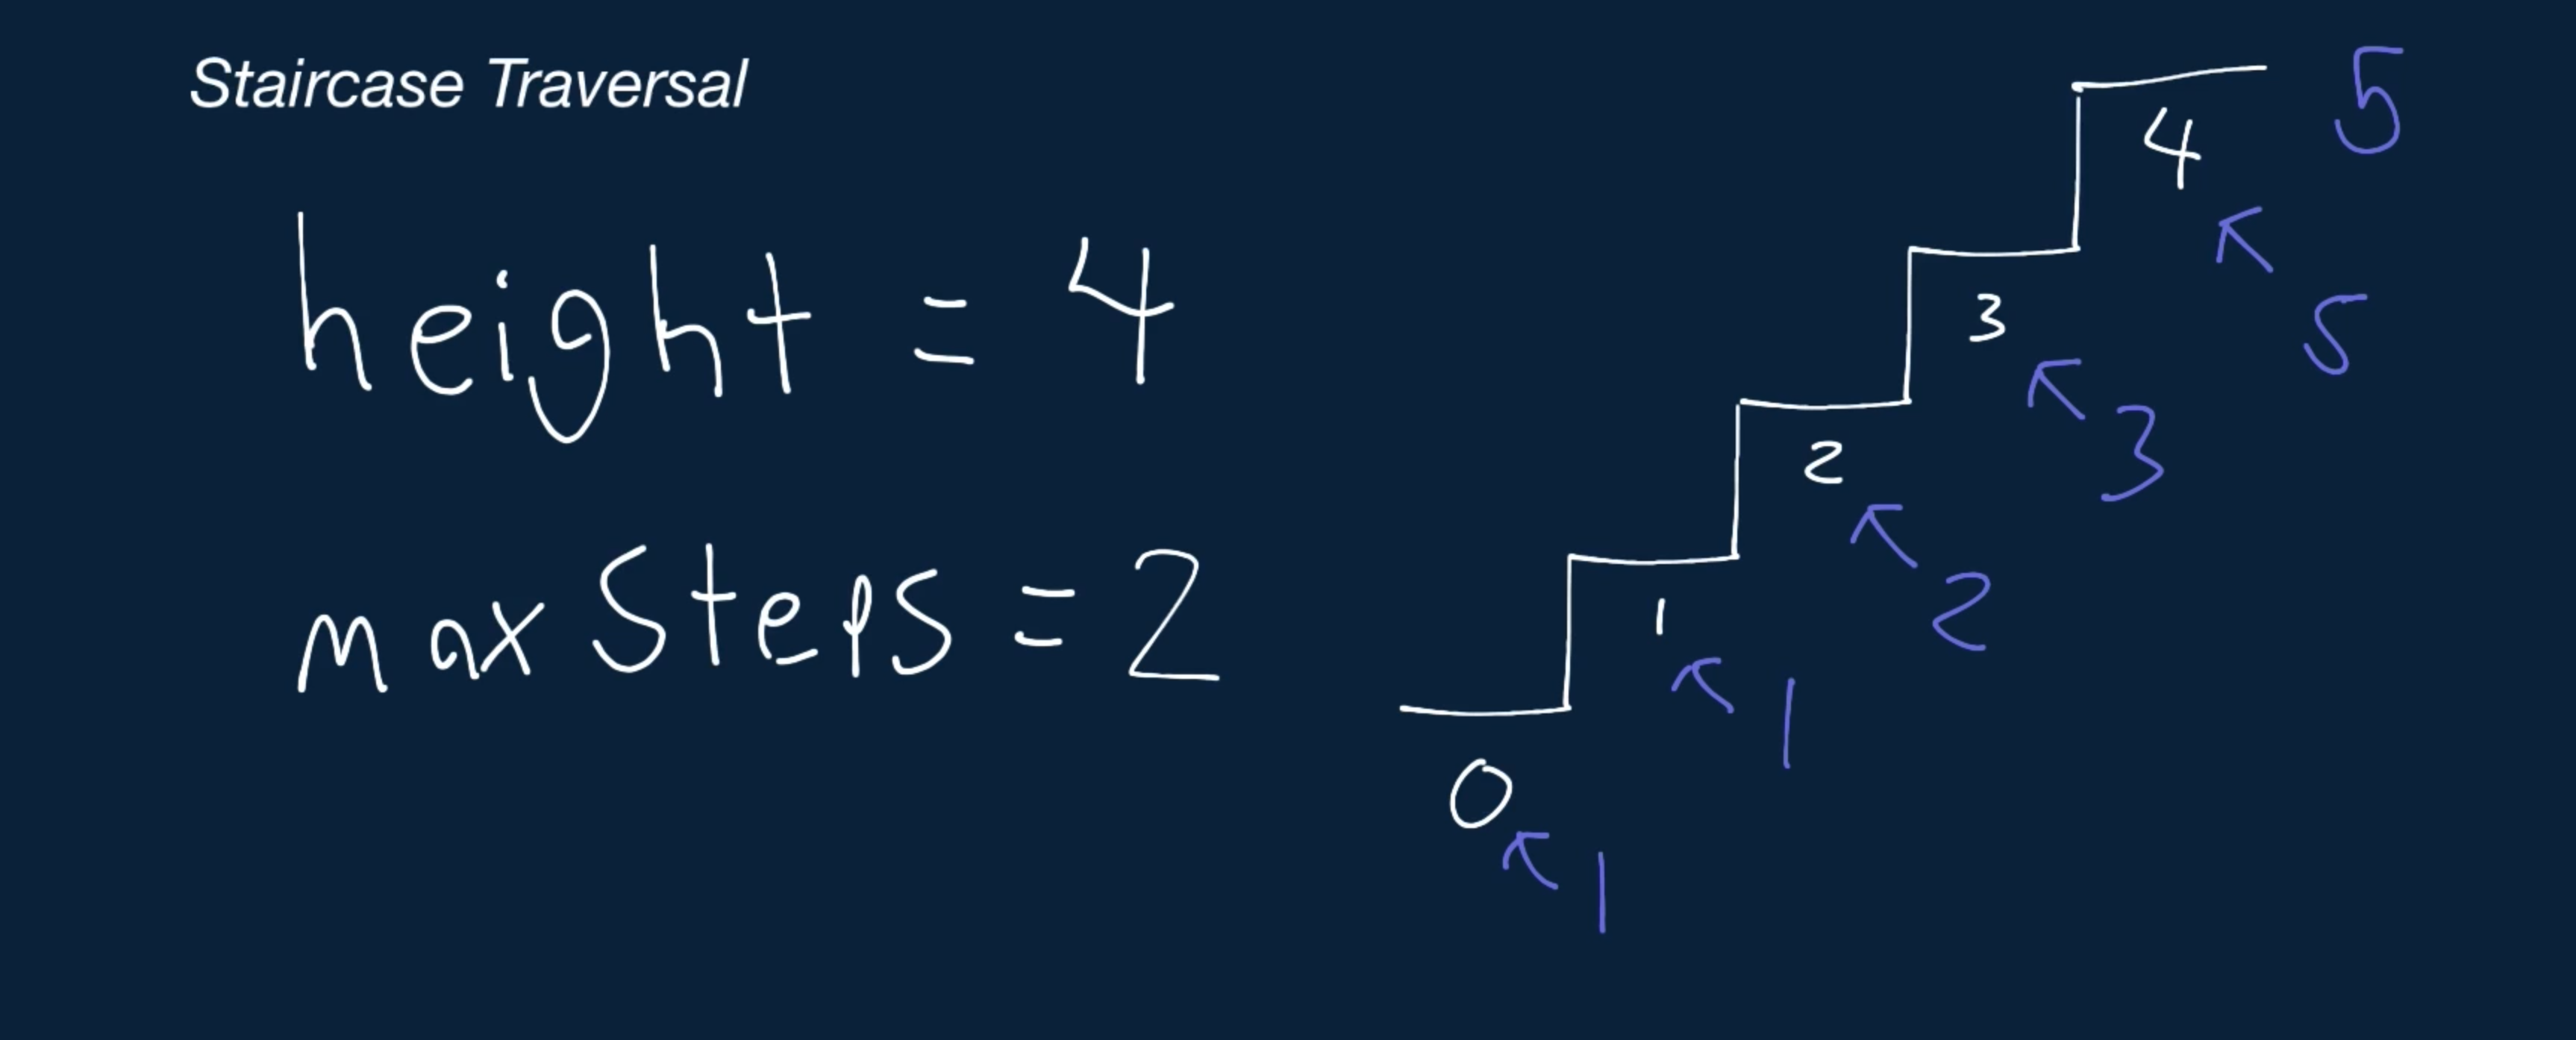 Staircase Traversal
height = 4
max Steps = 2
5
4
5
3
3
2
2
1
1
0
1